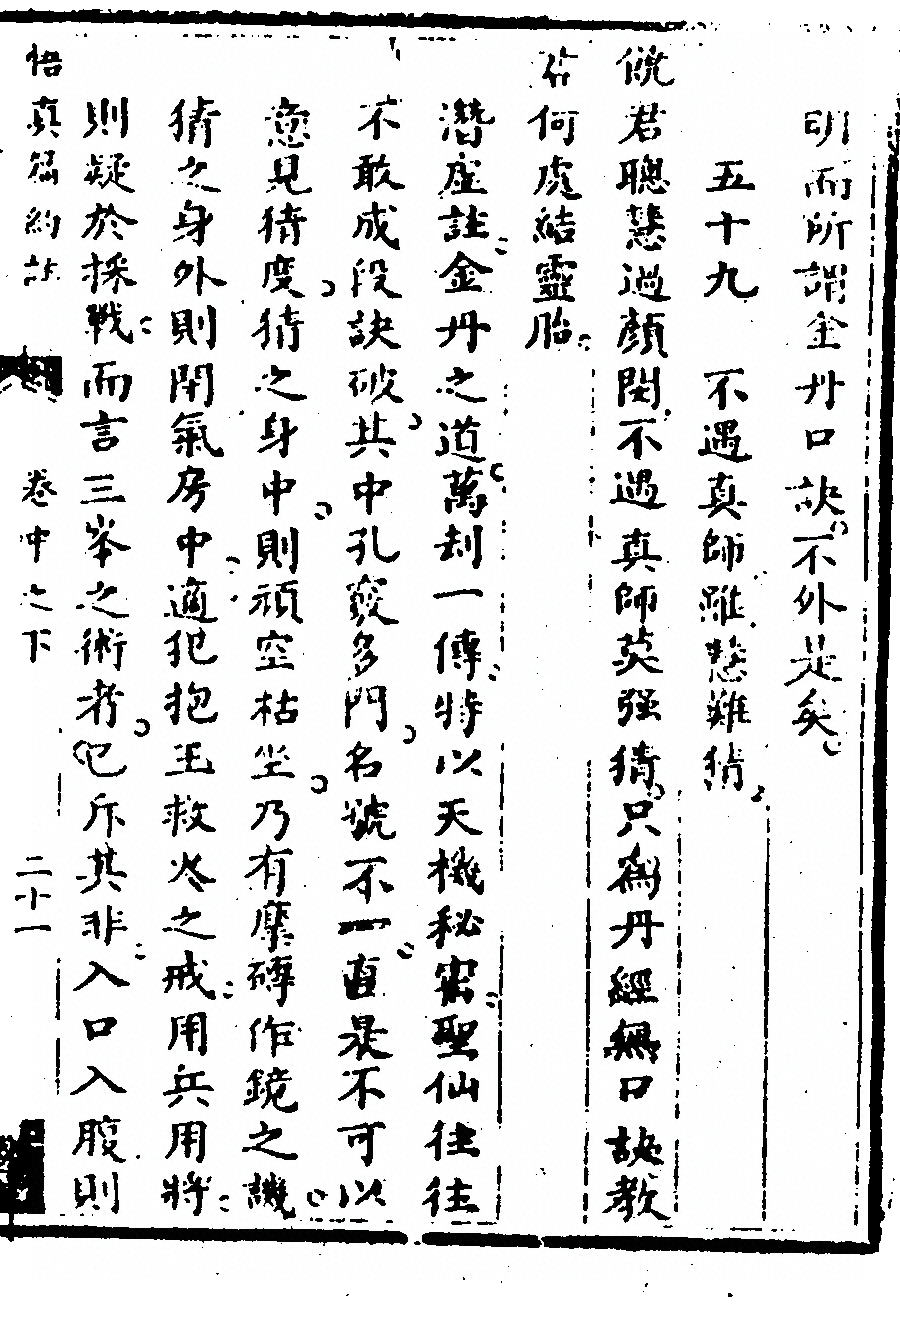 明而所謂金丹口訣不外是矣
五十九　不遇真師雖慧難猜
饒君聰慧過顔閔不遇真師莫强猜只為丹經無口訣教
君何處結靈胎
潛虛註金丹之道萬刧一傳特以天機秘密聖仙往往
不敢成段訣破其中孔竅多門名號不一直是不可以
意見待度猜之身中則頑空枯坐乃有磨磚作鏡之譏
猜之身外則閉氣房中適犯抱玉救火之戒用兵用將
則疑於採戰而言三峯之術者已斥其非入口入腹則
悟真篇約註　卷中之下　二十一